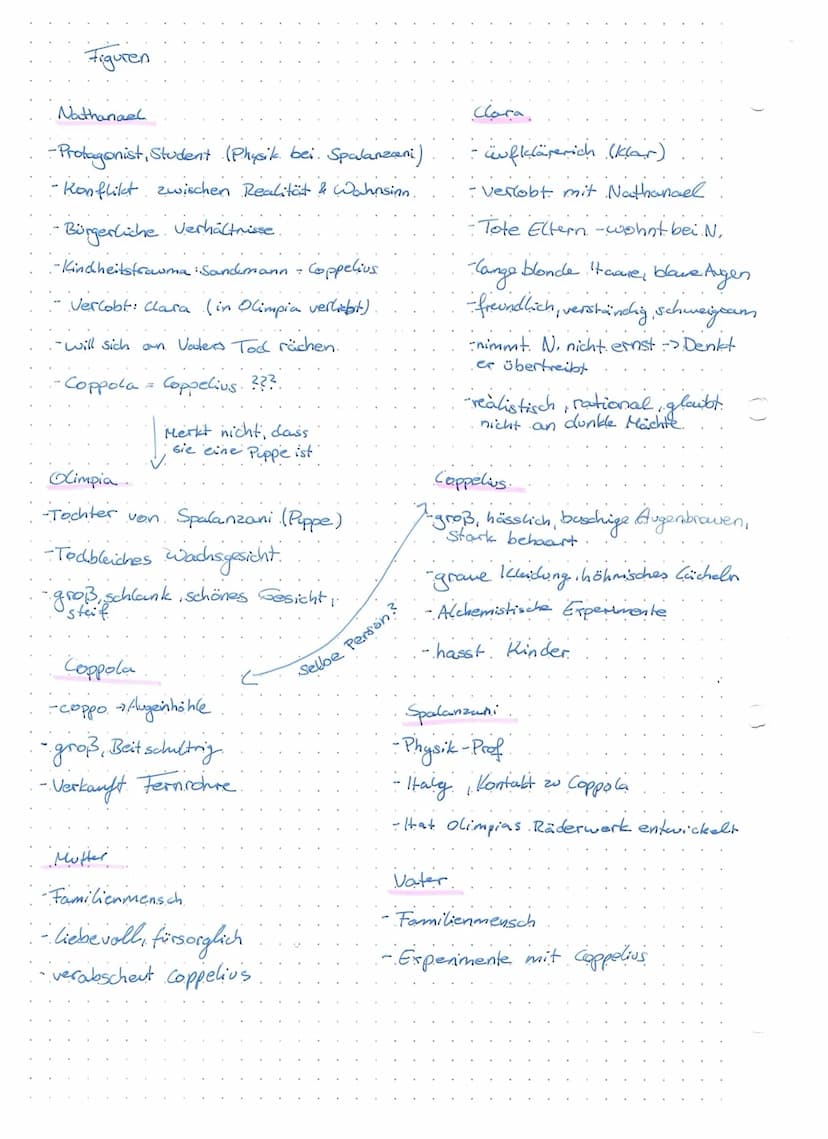 Figuren
Nathanael
- Protagonist, Student (Physik bei Spalanzani)
- Konflikt zwischen Realität & Wahnsinn
- Bürgerliche Verhältnisse
- Kindheitstrauma: Sandmann = Coppelius
- Verlobt: Clara (in Olimpia verliebt)
- will sich an Vaters Tod rächen
- Coppola = Coppelius ???
Merkt nicht, dass
sie eine Puppe ist
Clara
- aufklärerich (klar)
- verlobt mit Nathanael
- Tote Eltern - wohnt bei N.
- lange blonde Haare, blaue Augen
- freundlich, verständig, schweigsam
- nimmt N. nicht ernst -> Denkt
er übertreibt
- realistisch, rational, glaubt
nicht an dunkle Mächte
Olimpia
- Tochter von Spalanzani (Puppe)
- Todbleiches Wachsgesicht
- groß, schlank, schönes Gesicht,
steif
Coppelius
- groß, hässlich, buschige Augenbrauen,
stark behaart
- graue Kleidung, höhnisches Lächeln
- Alchemistische Experimente
- hasst Kinder
selbe Person?
Coppola
- coppo -> Augenhöhle
- groß, Beitschultrig
- Verkauft Fernrohre
Spalanzani
- Physik-Prof
- Italy, Kontakt zu Coppola
- Hat Olimpias Räderwerk entwickelt
Mutter
- Familienmensch
- liebevoll, fürsorglich
- verabscheut Coppelius
Vater
- Familienmensch
- Experimente mit Coppelius